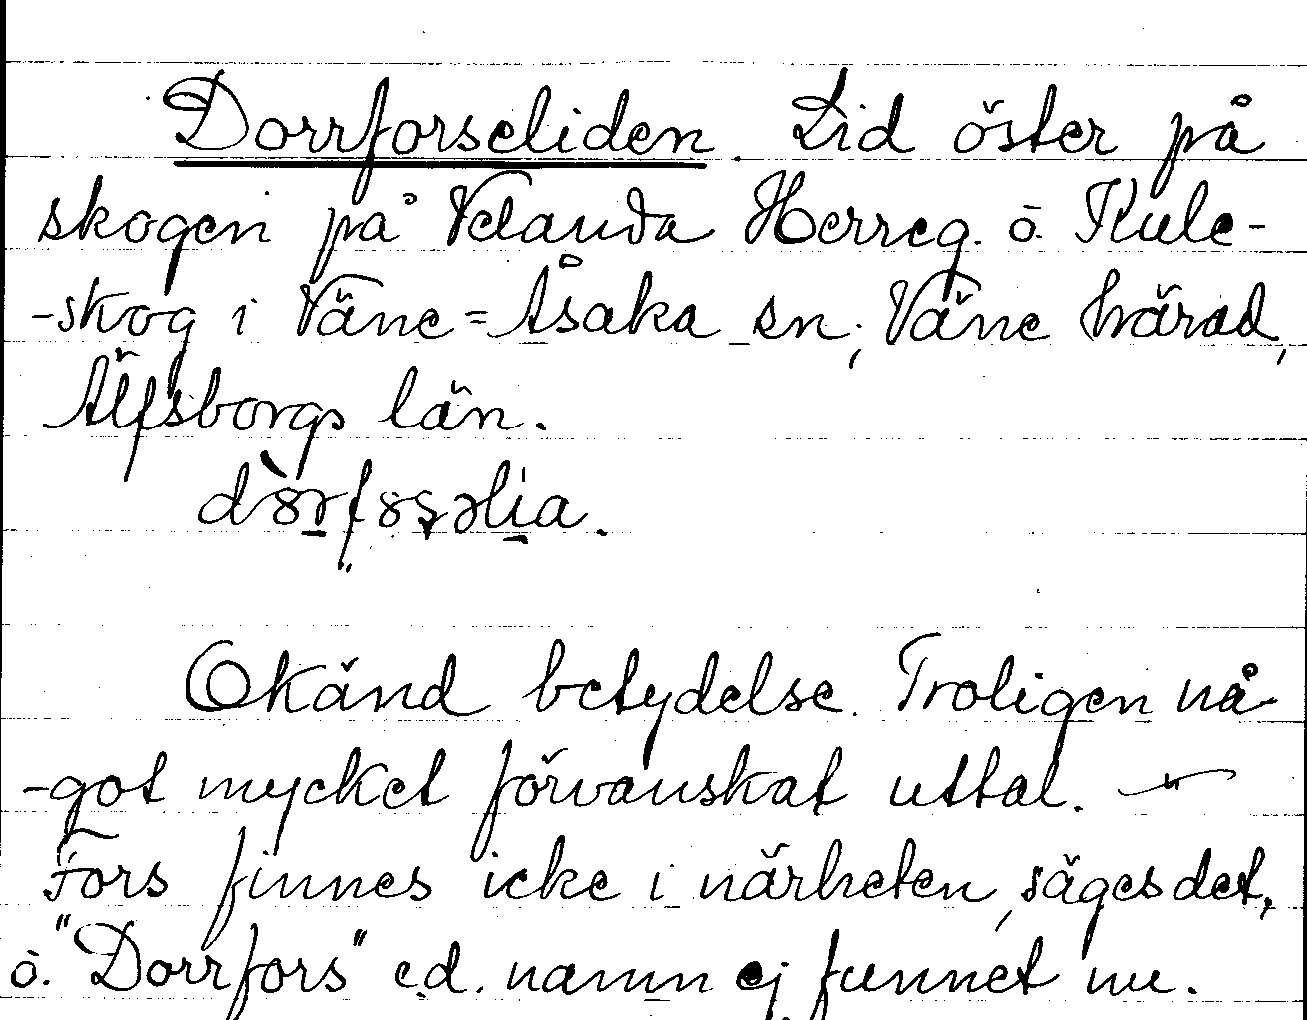 Dorrforseliden. Lid öster på
skogen på Velanda Herreg. o. Kule-
-skog i Väne=Åsaka sn; Väne härad,
Älfsborgs län.
Okänd betydelse. Troligen nå-
-got mycket förvanskat uttal. —
Fors finnes icke i närheten, säges det,
o. "Dorrfors" e.d. namn ej funnet nu.